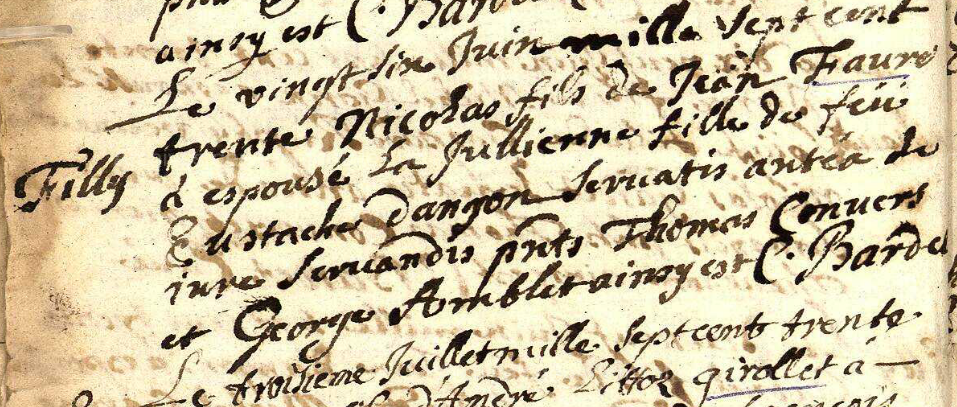 ainsy est C. Bardel
Le vingt sin Juin mille sept cent
trente Nicolas fils de Jean Faure
Filly
à espousé La Jullienne fille de feü
Eustache Dangon servatis antéa de
iure servandis pnts Thomas Convers
et George Amblet ainsy est C. Bardel
Le troisieme Juillet mille sept cent trente
d'André girollet à